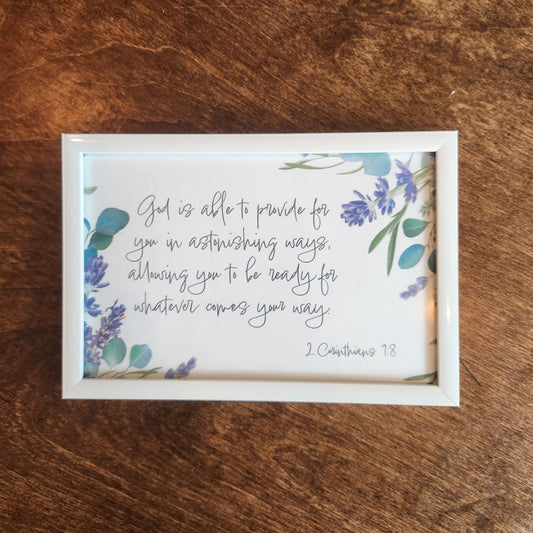 God is able to provide for
you in astonishing ways,
allowing you to be ready for
whatever comes your way.
2 Corinthians 9:8